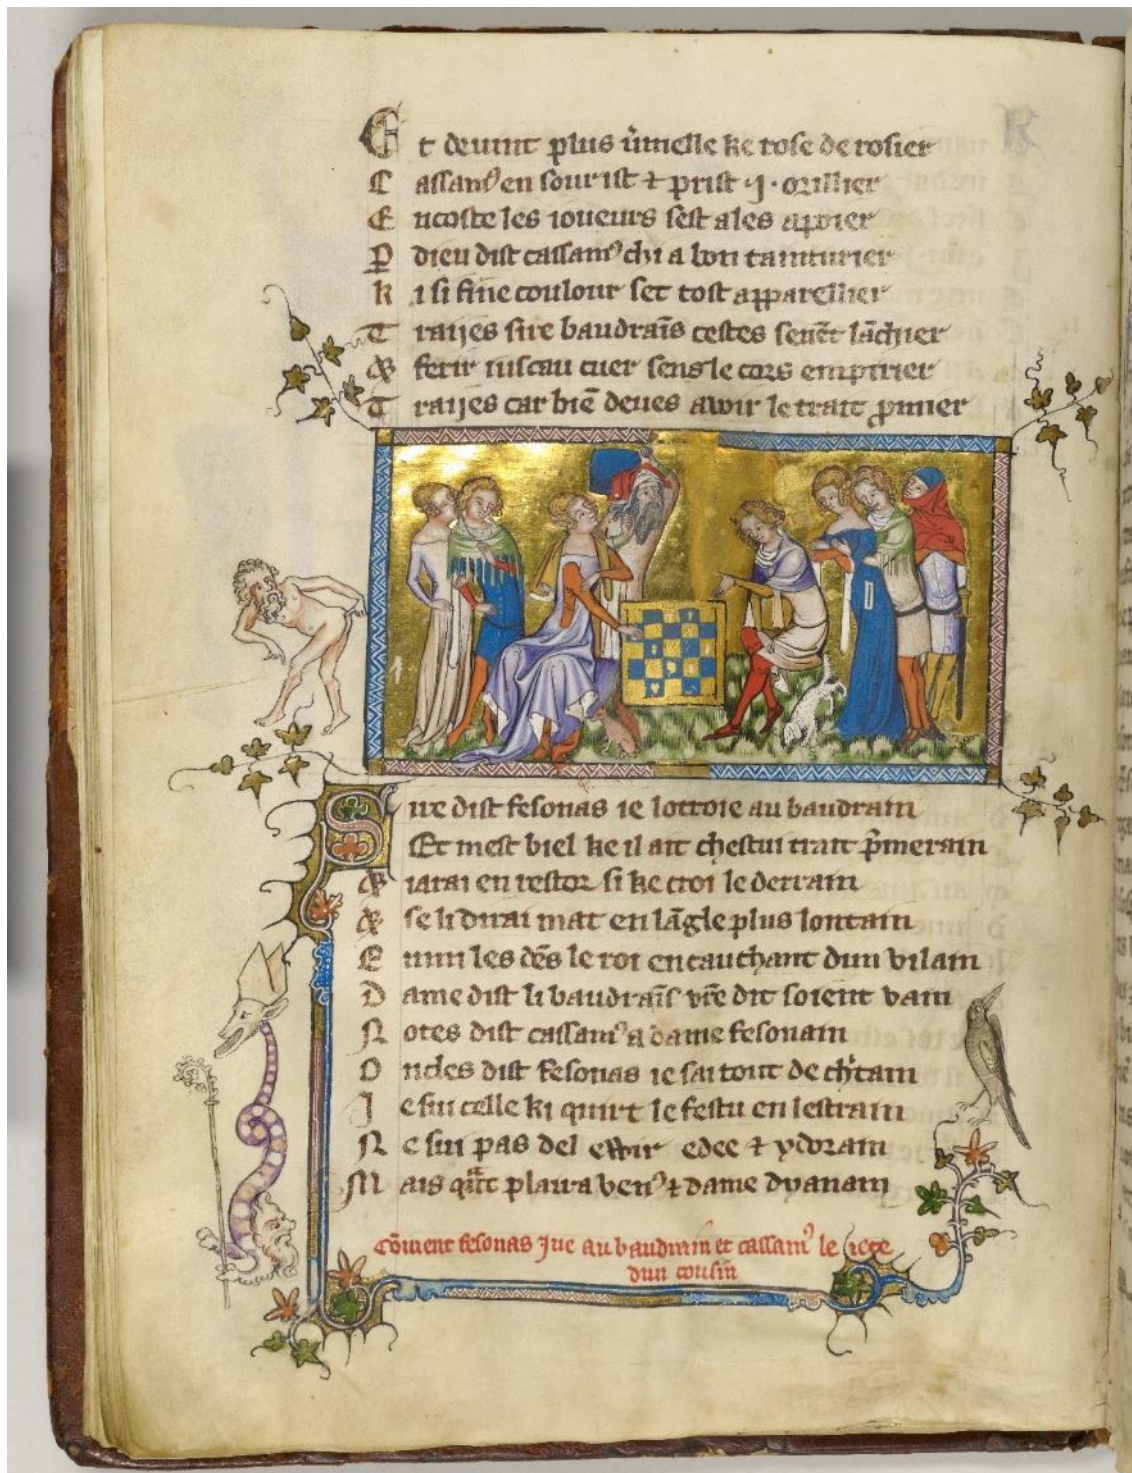 Et deuint plus v̾meille ke rose de rosier
Cassan⁹ en sourist ⁊ prist ·j· orillier
Encoste les ioueurs sest ales apoier
P dieu dist cassam⁹ chi a bon tainturier
Ki si fine coulour set tost apparellier
Traijes sire baudrai̅s cestes seue̅t la̅chier
⁊ ferir iuscau cuer sens le cors empirier
Traijes car bie̅ deues awir le trait p̾mier
Sire dist fesonas ie lottroie au baudrain
Et mest biel ke il ait chestui trait p̾merain
⁊ iarai en restor si ke croi le derrain
⁊ se li dirai mat en la̅gle plus lontain
Enmi les de̅s le roi encauchant dun vilain
Dame dist li baudrai̅s vr̅e dit soient vain
Notes dist cassam⁹ a dame fesonain
Oncles dist fesonas ie sai tout de c̾tain
Je sui celle ki quirt le festu en lestrain
Ne sui pas del edee ⁊ ydorain
Mais qa̅t plaira ven⁹ ⁊ dame dyanain
Co̅ment fesonas Jue au baudrain et cassam⁹ le iete
dun cousin̅